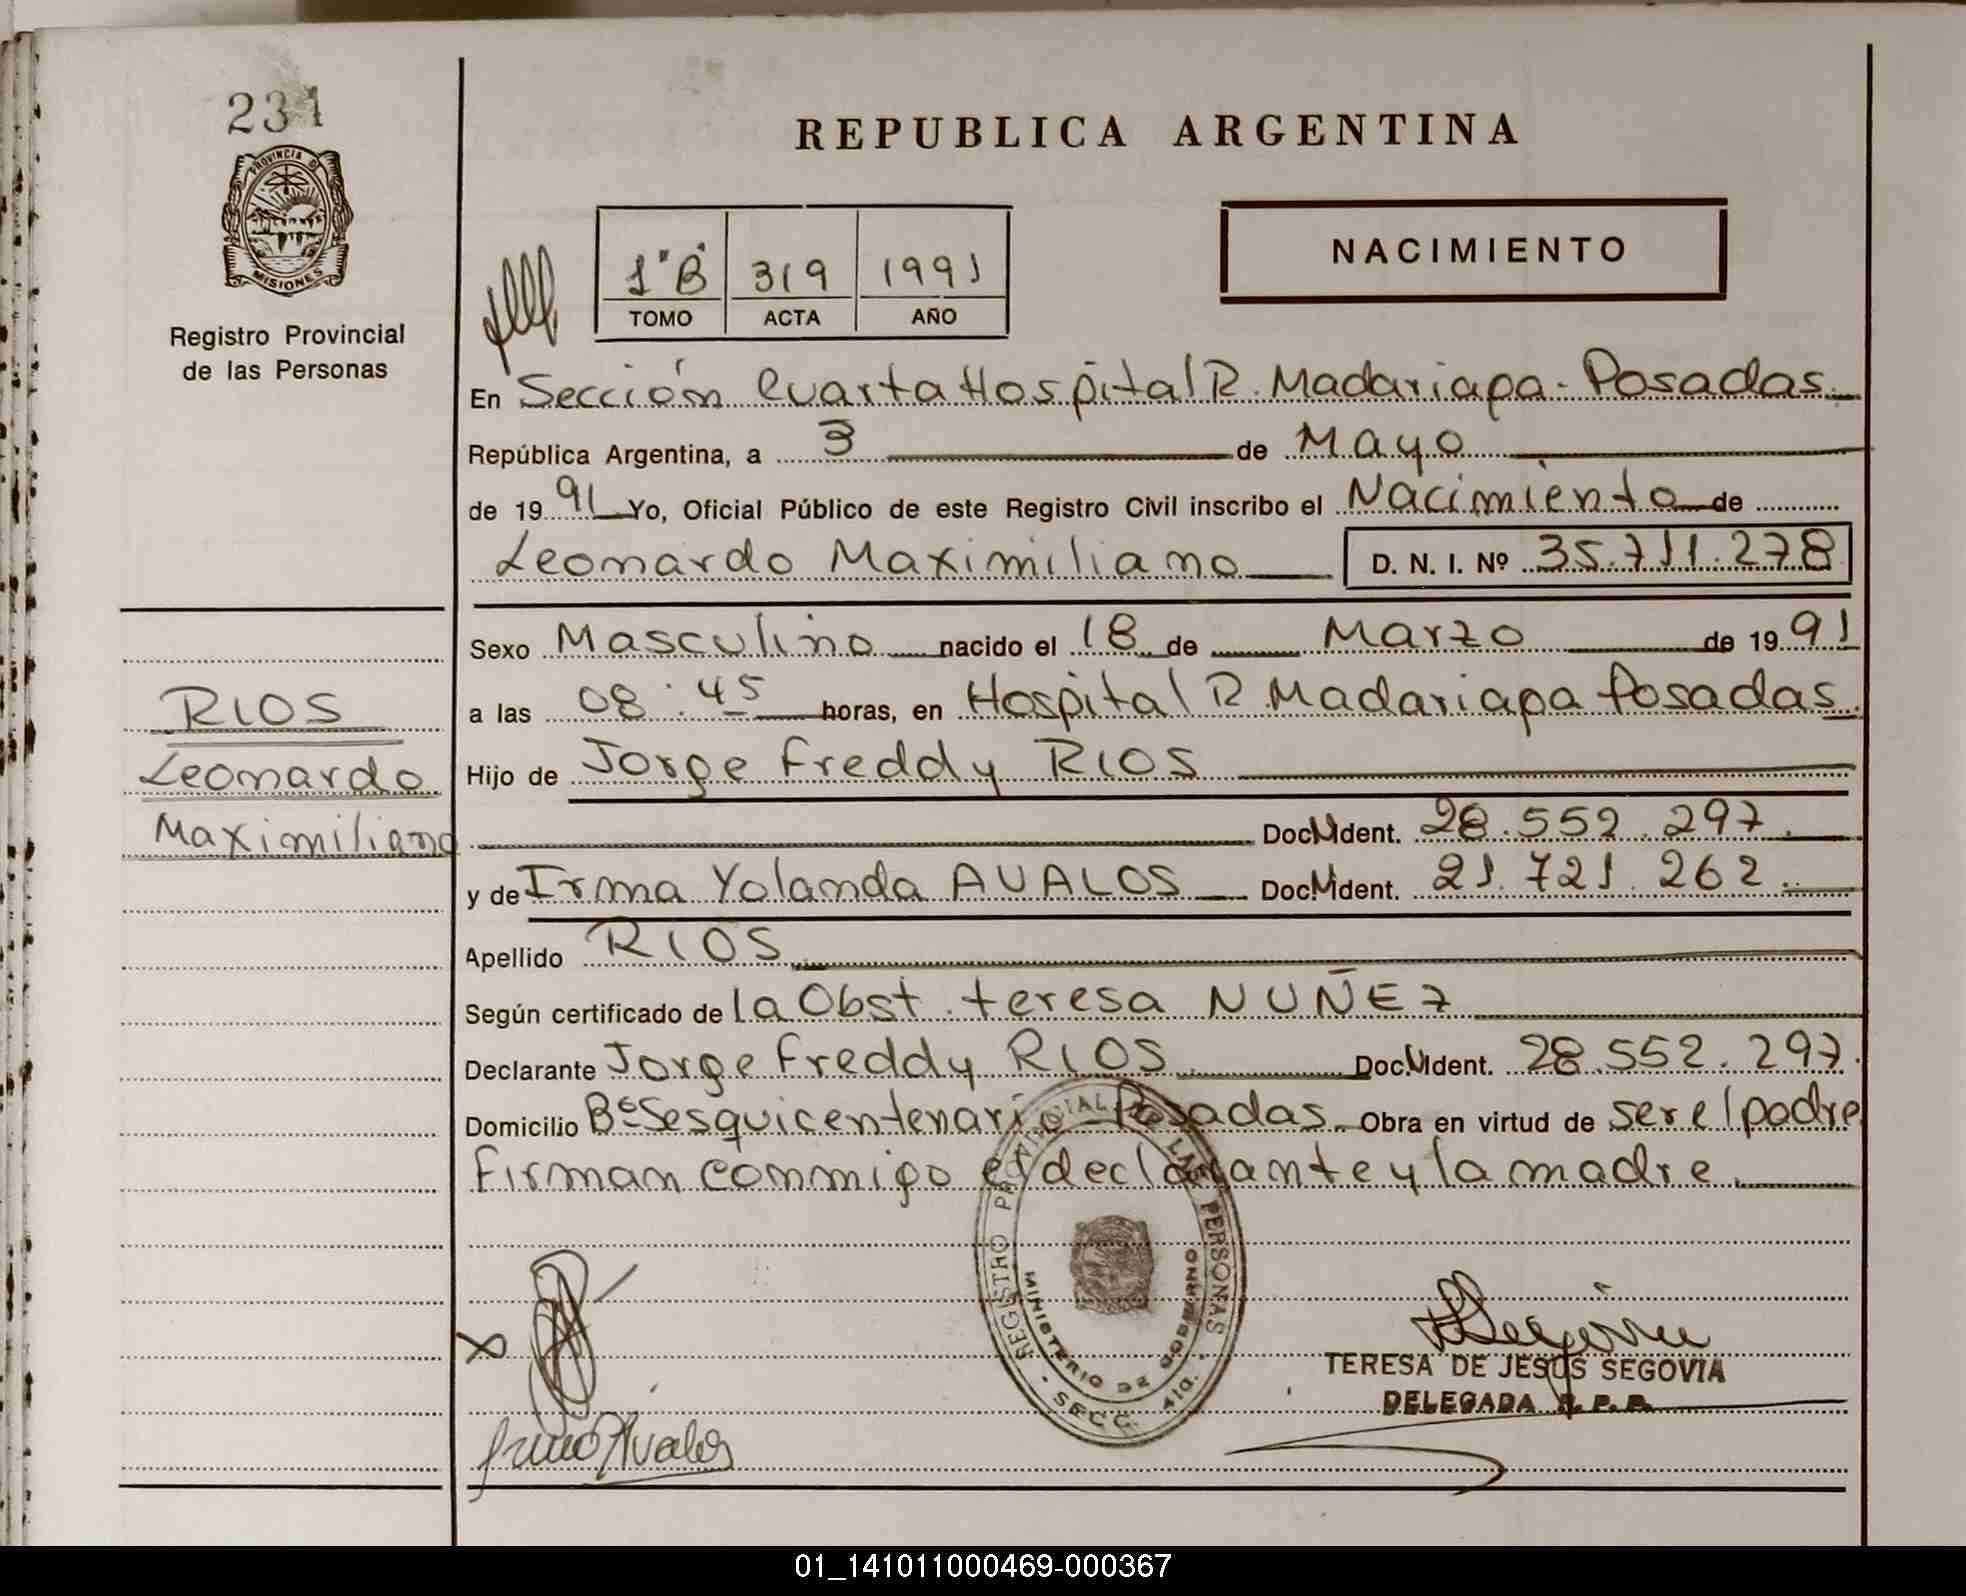 231
PROVINCIA D
MISIONES
Registro Provincial
de las Personas
REPUBLICA ARGENTINA
1º"B" 319 1991
TOMO ACTA AÑO
NACIMIENTO
En Sección Cuarta Hospital R. Madariaga - Posadas
República Argentina, a 3 de Mayo
de 1991 Yo, Oficial Público de este Registro Civil inscribo el Nacimiento de
Leonardo Maximiliano D. N. I. Nº 35.711.278
Sexo Masculino nacido el 18 de Marzo de 1991
a las 08:45 horas, en Hospital R. Madariaga Posadas.
Hijo de Jorge Freddy RIOS
Doc. Ident. 28.552.297.
y de Irma Yolanda AVALOS Doc. Ident. 21.721.262.
Apellido RIOS
Según certificado de la Obst. teresa NUÑEZ
Declarante Jorge Freddy RIOS. Doc. Ident. 28.552.297.
Domicilio Bº Sesquicentenario - Posadas. Obra en virtud de ser el padre
Firman conmigo el declarante y la madre.
RIOS
Leonardo
Maximiliano
REGISTRO PROVINCIAL DE LAS PERSONAS
MINISTERIO DE GOBIERNO
SECC. 4ta.
Irma Avalos
TERESA DE JESUS SEGOVIA
DELEGADA R. P. P.
01_141011000469-000367